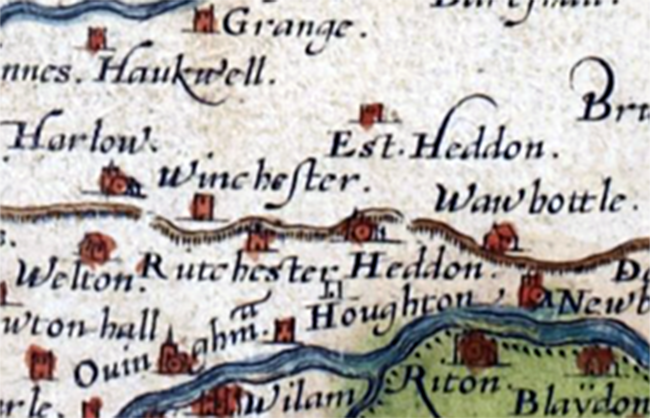 Grange.
nnes. Haukwell.
Bru
Harlow.
Est. Heddon.
Winchester.
Wawbottle.
Welton. Rutchester Heddon.
Houghton Newb
wton hall
Ouinghm̄.
Wilam Riton. Blaydon